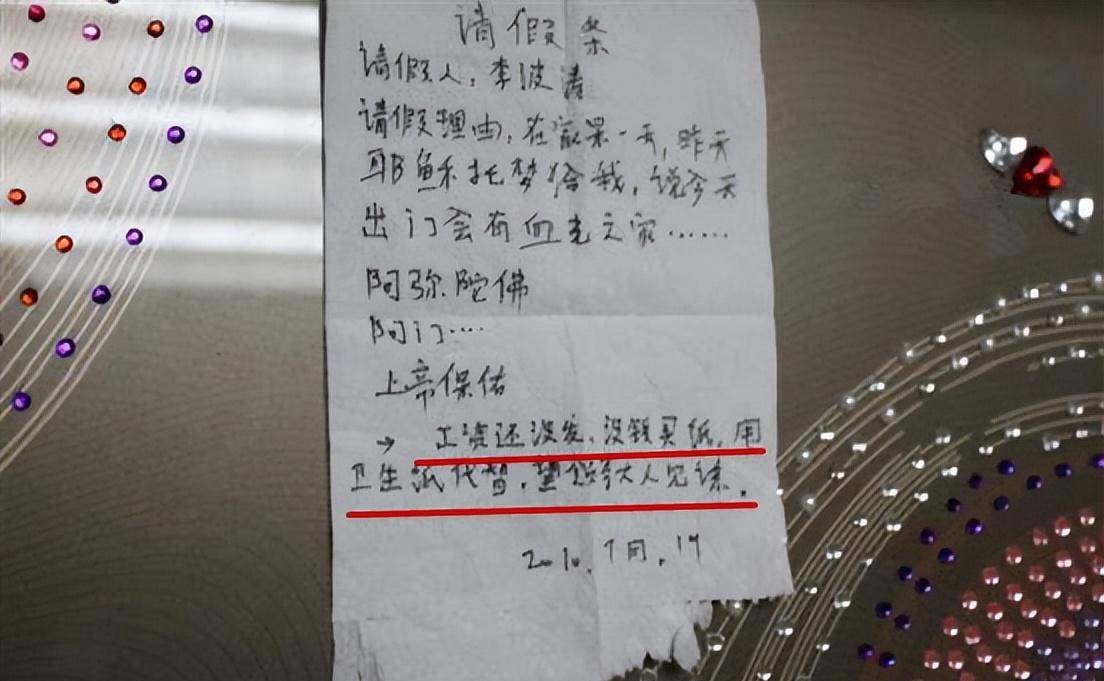 请假条
请假人：李波涛
请假理由：在家呆一天，昨天
耶稣托梦给我，说今天
出门会有血光之灾……
阿弥陀佛
阿门……
上帝保佑
→ 工资还没发，没钱买纸，用
卫生纸代替，望领导大人见谅。
2010.7月.19